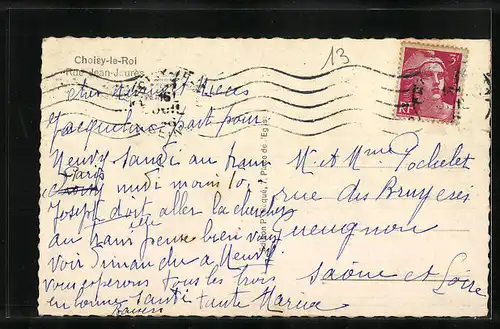 Choisy-le-Roi
Rue Jean-Jaurès
13
3F
RF
Cher neveu et nièces
Jacqueline part pour
Neuvy samedi au train
Paris midi moins 10.
Joseph doit aller la chercher
au train elle pense bien vous
voir Dimanche à Neuvy.
vous espérons tous les trois
en bonne santé tante Maria
baisers
M. et Mme Pochelet
rue des Bruyères
Gueugnon
Saône et Loire
Place de l'Eglise